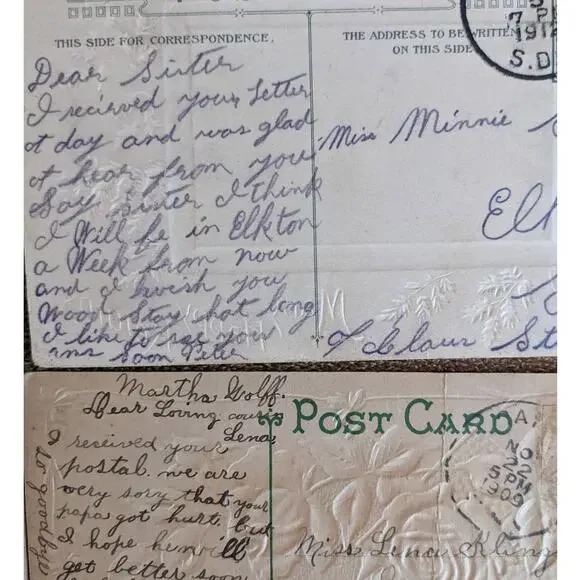 THIS SIDE FOR CORRESPONDENCE.
THE ADDRESS TO BE WRITTEN
ON THIS SIDE
7 P
1912
S.D
Dear Sister
I recierved your Letter
t day and was glad
t hear from you
Say Sister I think
I Will be in Elkton
a Week from now
and I hwish you
Wood Stay hot long
I like to see you
ans soon Peter
Miss Minnie
Elk
Claus St
Martha Wolff.
Dear Loving cousin
Lena,
I received your
postal. we are
very sory that your
papa got hurt. but
I hope he will
get better soon
so goodbye
POST CARD
A.
NO
22
5 PM
1909
Miss Lena Kling